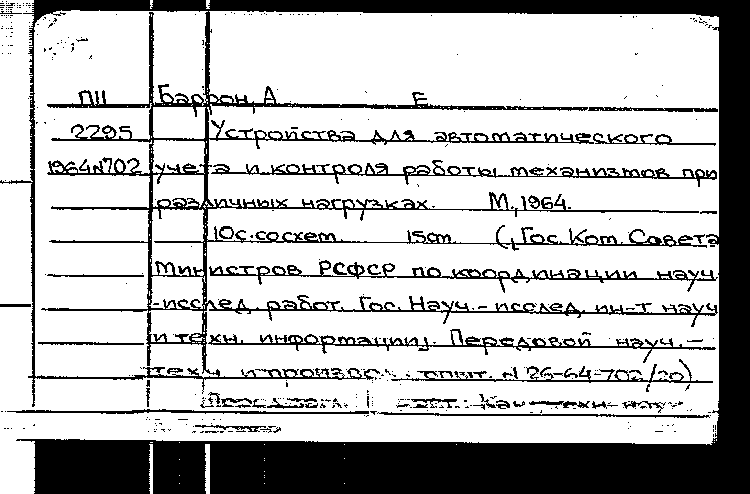 П11 Баррон, А Е
2295 Устройства для автоматического
1964N702 учета и контроля работы механизмов при
различных нагрузках. М., 1964.
10с. со схем. 15cm. (Гос. Ком. Совета
Министров РСФСР по координации науч.
-исслед. работ. Гос. Науч.-исслед. ин-т науч
и техн. информации. Передовой науч.-
техн. и производ. опыт. N 26-64-702/20)